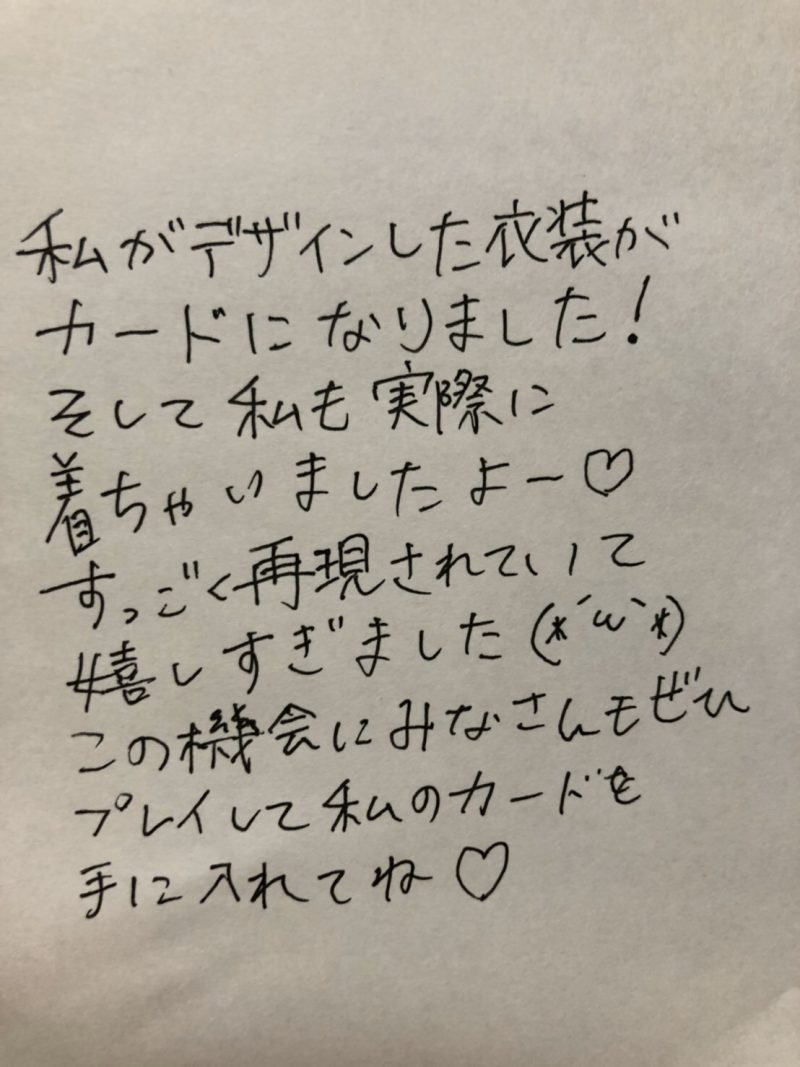 私がデザインした衣装が
カードになりました!
そして私も実際に
着ちゃいましたよー♡
すっごく再現されていて
嬉しすぎました(*´ω`*)
この機会にみなさんもぜひ
プレイして私のカードを
手に入れてね♡